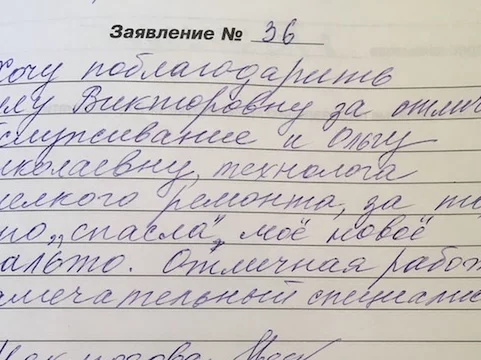 Заявление № 36
Хочу поблагодарить
Викторовну за отлич
служивание и Ольгу
иколаевну, технолога
мелкого ремонта, за то
„спасла" моё новое
альто. Отличная работ
амечательный специалис